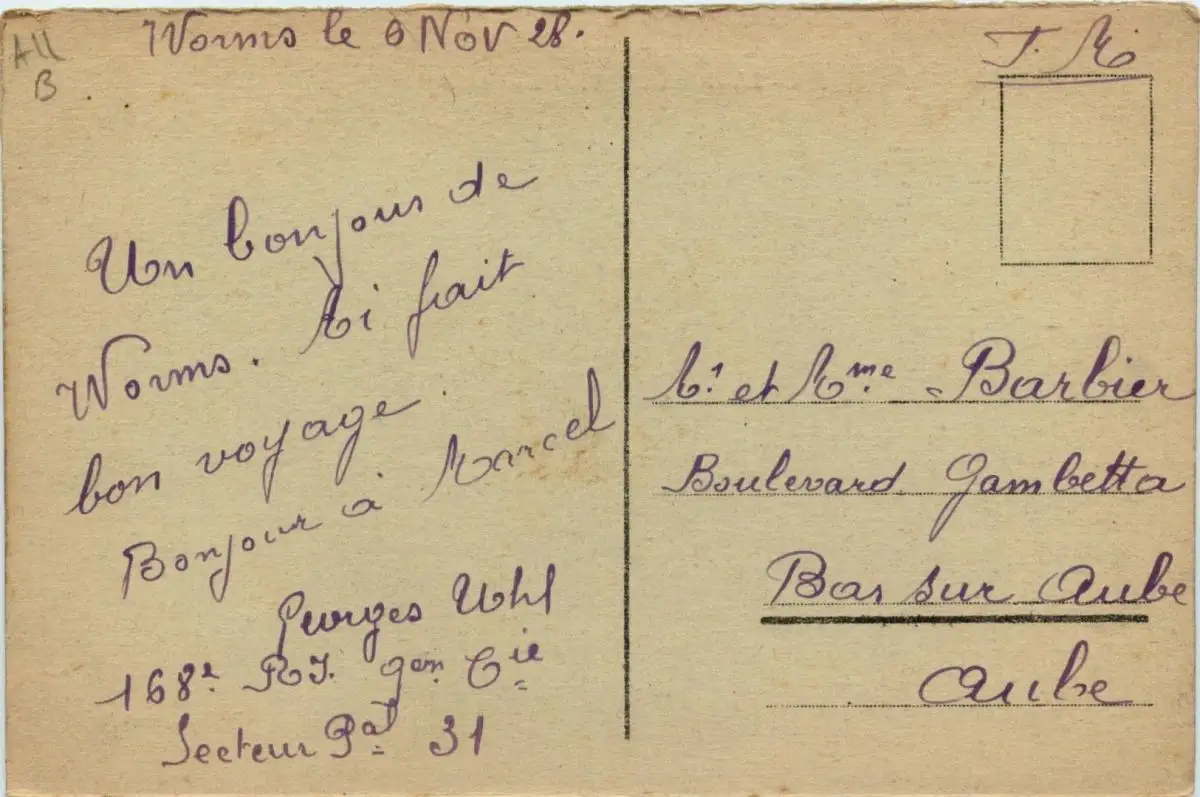 All
B
Worms le 6 Nov 28.
Un bonjour de
Worms. Ai fait
bon voyage.
Bonjour à Marcel
Georges Uhl
168e R.I. Cie
Secteur Pal 31
F. M.
Mr et Mme Barbier
Boulevard Gambetta
Bar sur Aube
Aube